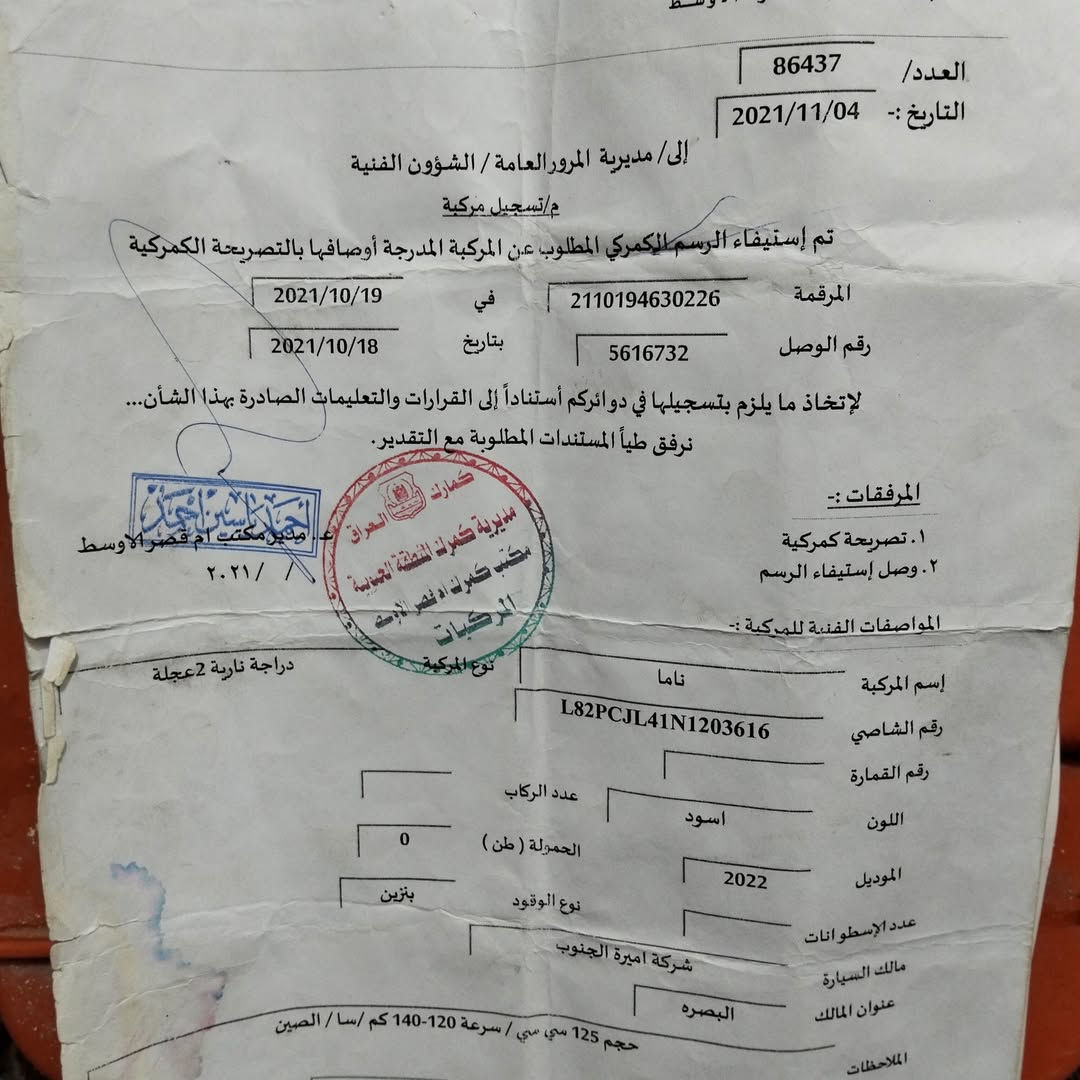 العدد/ 86437
التاريخ :- 2021/11/04
إلى/ مديرية المرور العامة / الشؤون الفنية
م/تسجيل مركبة
تم إستيفاء الرسم الكمركي المطلوب عن المركبة المدرجة أوصافها بالتصريحة الكمركية
المرقمة 2110194630226 في 2021/10/19
رقم الوصل 5616732 بتاريخ 2021/10/18
لإتخاذ ما يلزم بتسجيلها في دوائركم أستناداً إلى القرارات والتعليمات الصادرة بهذا الشأن...
نرفق طياً المستندات المطلوبة مع التقدير.
المرفقات :-
١. تصريحة كمركية
٢. وصل إستيفاء الرسم
أحمد ياسين احمد
ع. مدير مكتب ام قصر الاوسط
/ / ٢٠٢١
كمارك العراق
مديرية كمرك المنطقة الجنوبية
مكتب كمرك ام قصر الاوسط
المركبات
المواصفات الفنية للمركبة :-
إسم المركبة ناما نوع المركبة دراجة نارية 2عجلة
رقم الشاصي L82PCJL41N1203616
رقم القمارة
اللون اسود عدد الركاب
الموديل 2022 الحمولة ( طن ) 0
عدد الإسطوانات نوع الوقود بنزين
مالك السيارة شركة اميرة الجنوب
عنوان المالك البصره
الملاحظات حجم 125 سي سي / سرعة 120-140 كم /سا / الصين